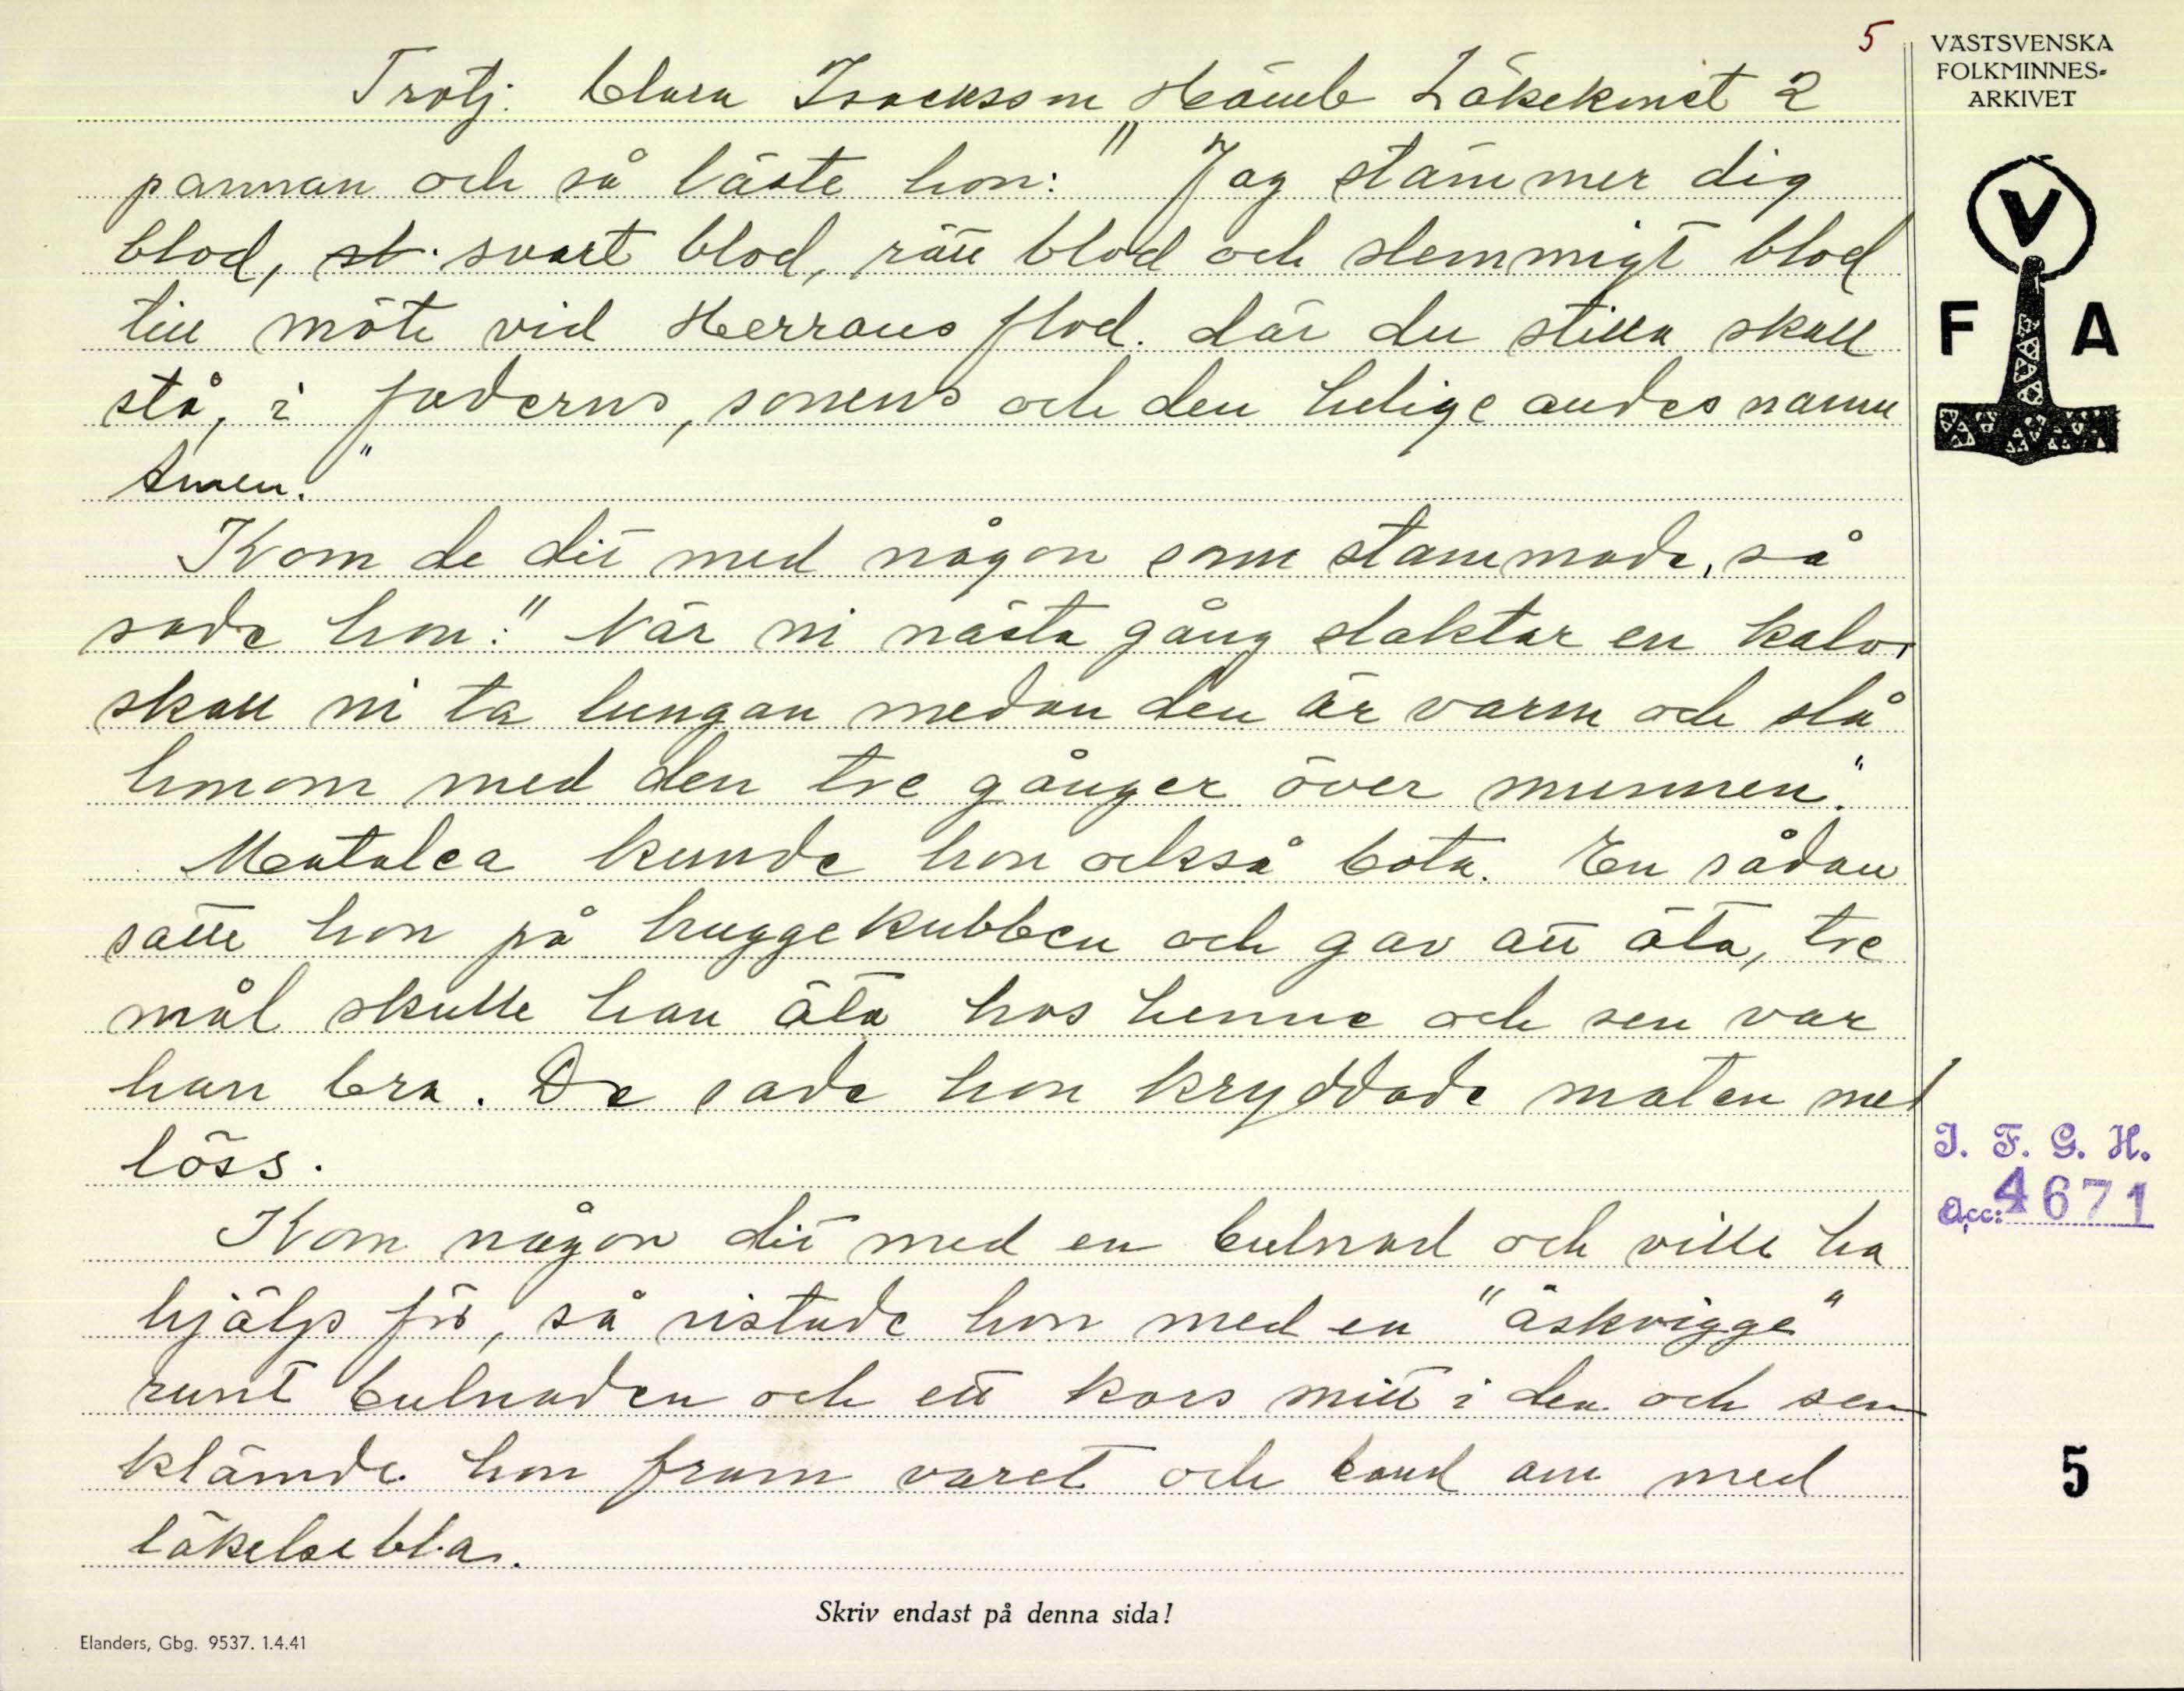 5
Trolj. Clara Isacksson Hömb Läkekonst 2
pannan och så läste hon: "Jag stämmer dig
blod, st. svart blod, rött blod och slemmigt blod
till möte vid Herrans flod. där du stilla skall
stå, i faderns, sonens och den helige andes namn
Amen."
Kom de dit med någon som stammade, så
sade hon: "När ni nästa gång slaktar en kalv,
skall ni ta lungan medan den är varm och slå
honom med den tre gånger över munnen."
Matalea kunde hon också bota. En sådan
satte hon på huggekubben och gav att äta, tre
mål skulle han äta hos henne och sen var
han bra. De sade hon kryddade maten med
löss.
Kom någon dit med en bulnad och ville ha
hjälp för, så ristade hon med en "åskvigge"
runt bulnaden och ett kors mitt i den och sen
klämde hon fram varet och band om med
läkelseblar.
Skriv endast på denna sida!
Elanders, Gbg. 9537. 1.4.41
VÄSTSVENSKA
FOLKMINNES-
ARKIVET
V
F A
I. F. G. H.
Acc: 4671
5